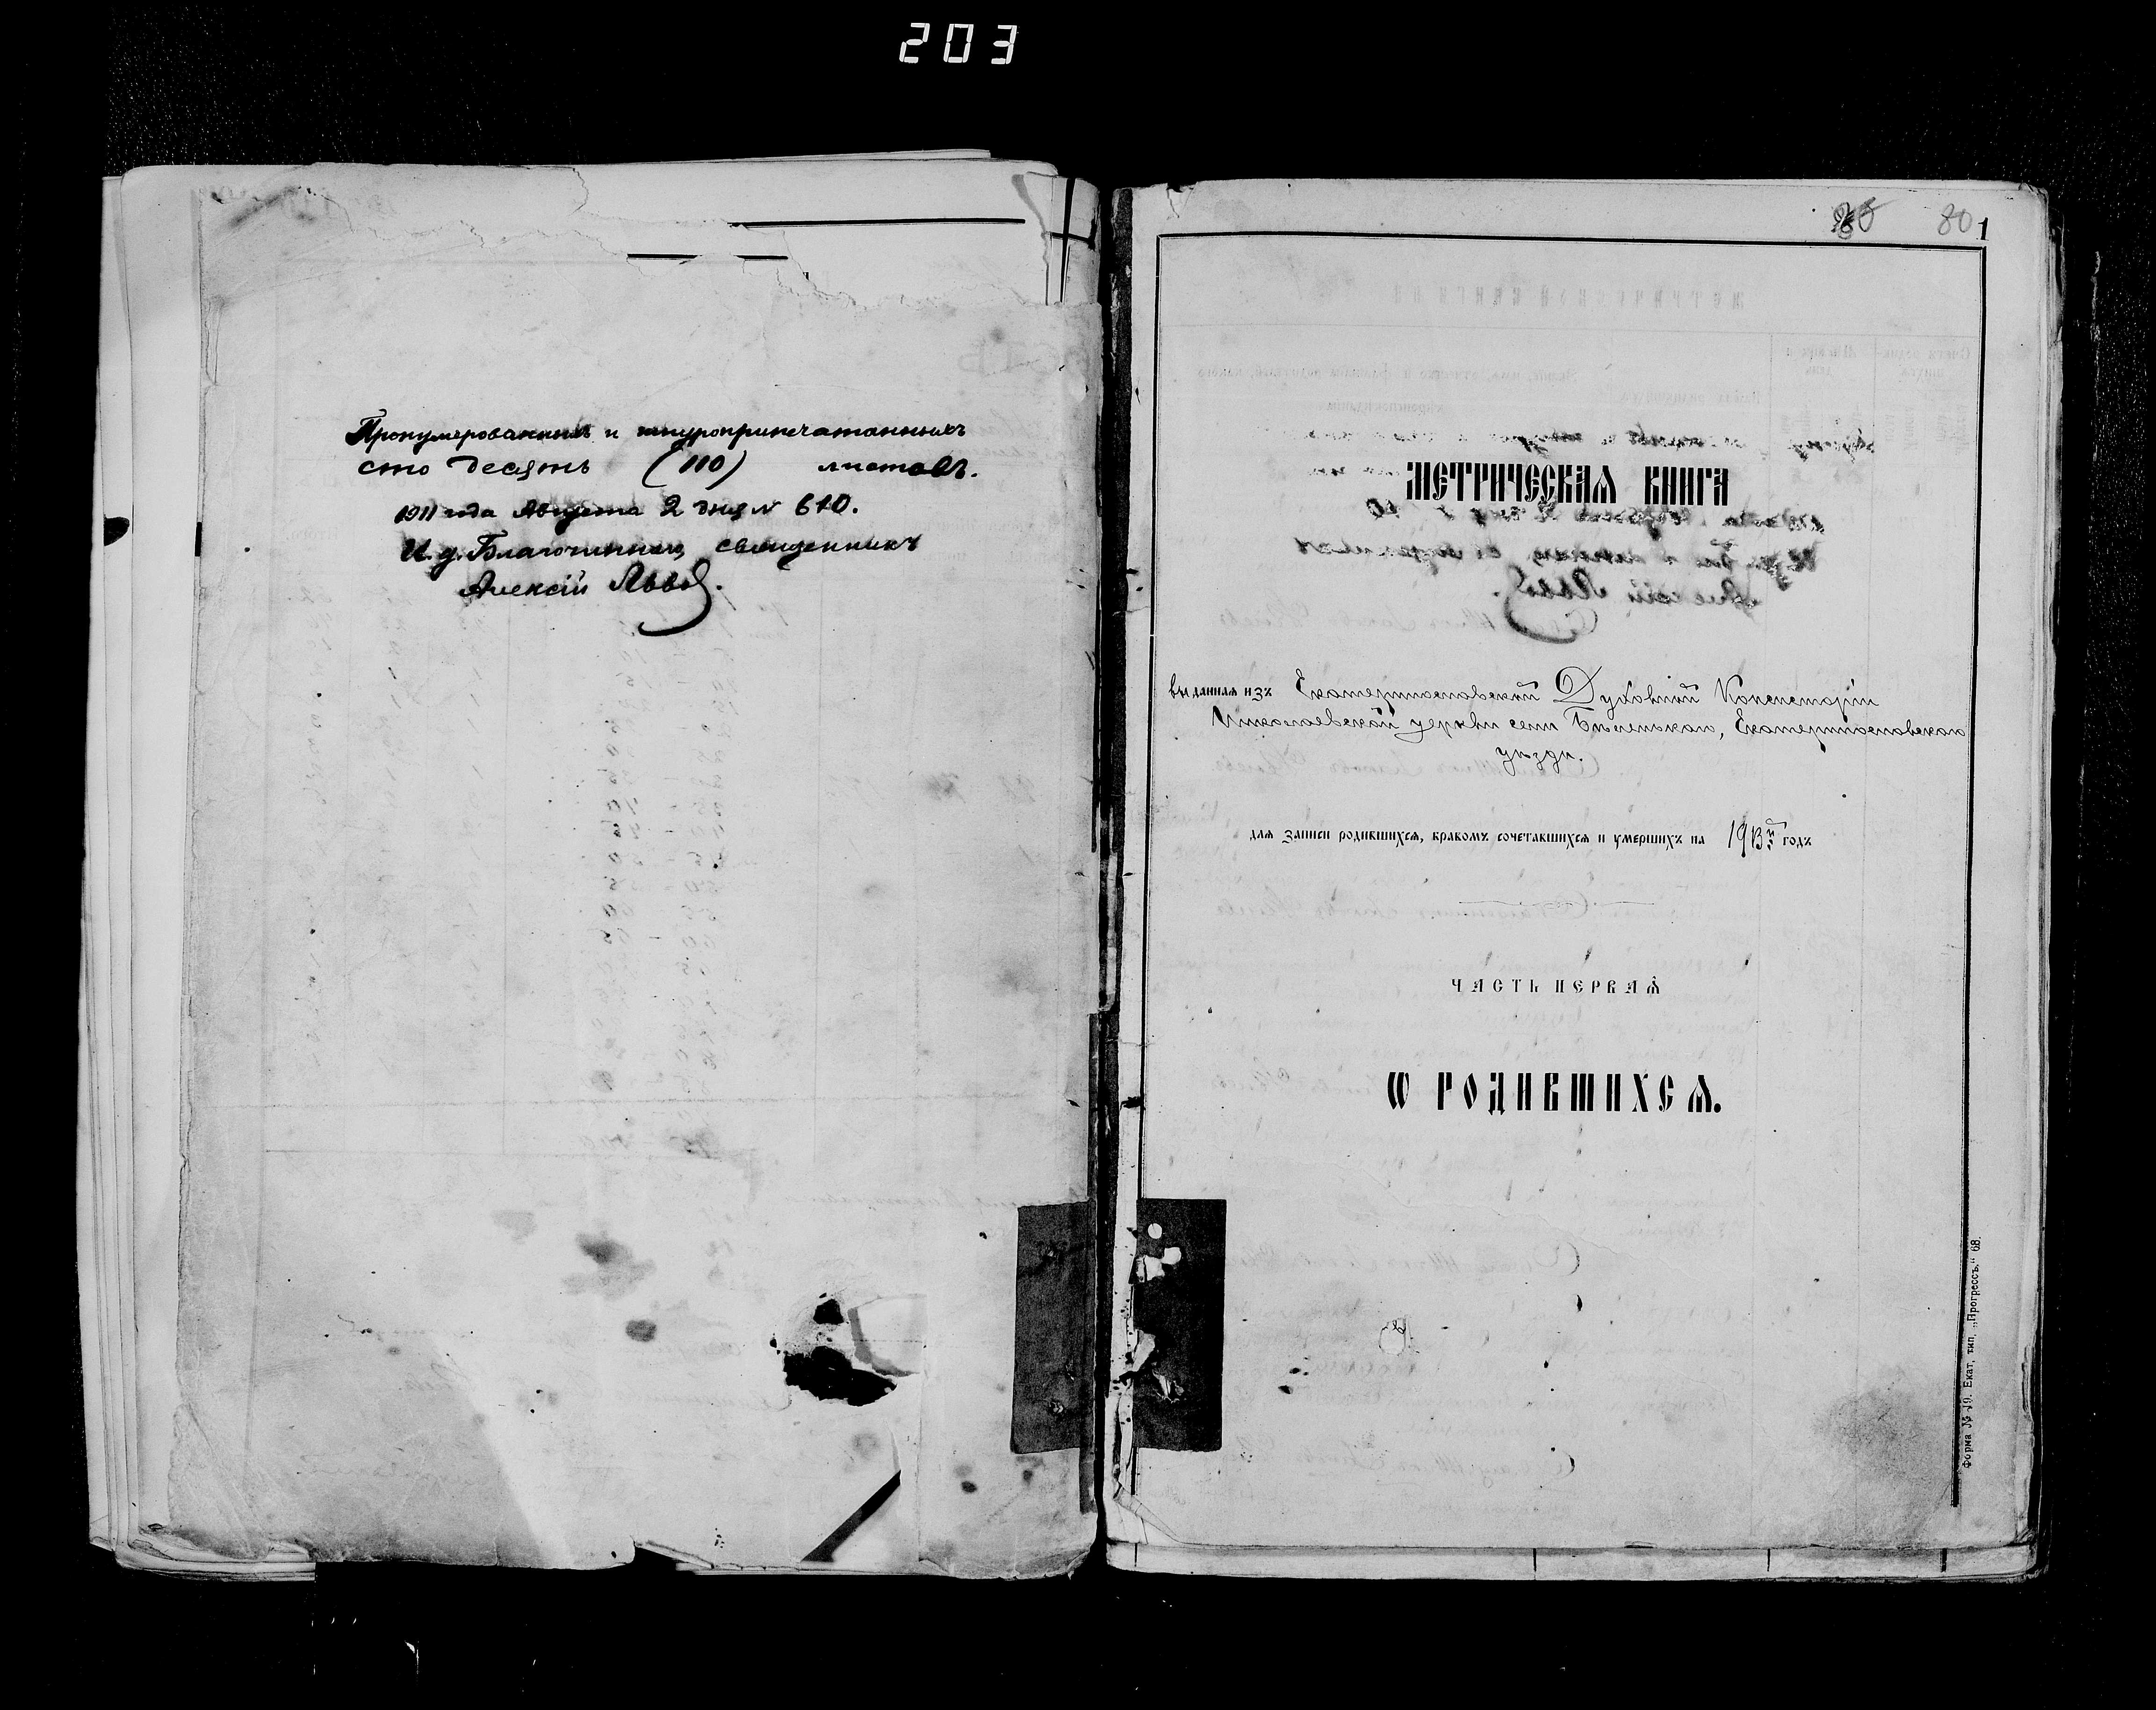 203
Пронумерованныхъ и шнуроприпечатанныхъ
сто десять (110) листовъ.
1911 года Августа 2 дня № 610.
И. д. Благочиннаго, священникъ
Алексій Львовъ.
80 1
МЕТРИЧЕСКАЯ КНИГА
выданная изъ Екатеринославской Духовной Консисторіи
Николаевской церкви села Бѣленькаго, Екатеринославскаго
уѣзда.
для записи родившихся, бракомъ сочетавшихся и умершихъ на 1913й годъ
ЧАСТЬ ПЕРВАЯ
Ѡ РОДИВШИХСЯ.
Форма № 19. Екат, тип. „Прогрессъ.“ 68.